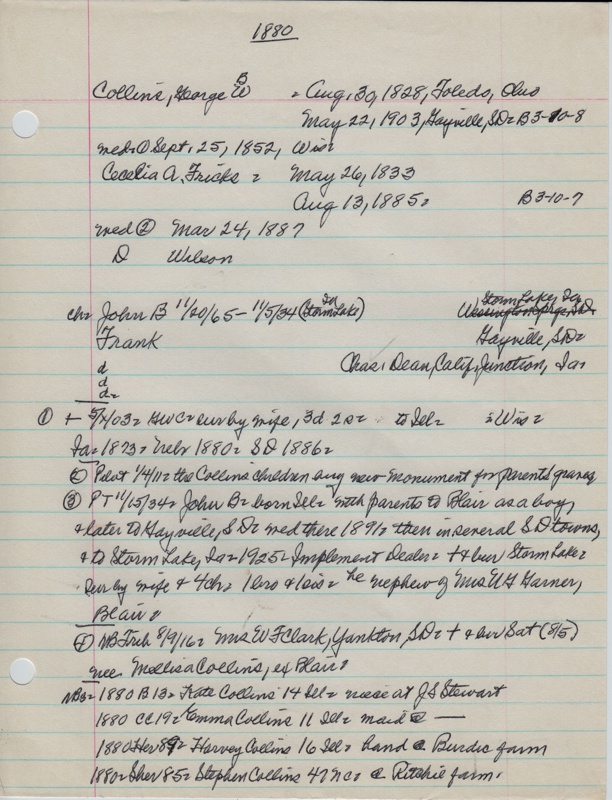 1880
Collins, George B W = Aug. 30, 1828, Toledo, Ohio
May 22, 1903, Gayville, SD = B3-10-8
med = ① Sept. 25, 1852, Wis =
Cecelia A. Fricks = May 26, 1833
Aug 13, 1885 = B3-10-7
med ② Mar 24, 1887
D Wilson
ch = John B 11/20/65 - 11/5/34 (Storm Lake) Ia Storm Lake, Ia
Frank Gayville, SD =
d Chas. Dean, Calif. Junction, Ia =
d
d =
① + 5/ /03 = GWC = sur by wife, 3d 2s = to Ill = = Wis =
Ia = 1873 = Nebr 1880 = SD 1886 =
② Pilot 1/4/11 = the Collins children new monument for parents graves
③ PT 11/15/34 = John B = born Ill = with parents to Blair as a boy,
& later to Gayville, SD = med there 1891 = then in several SD towns,
& to Storm Lake, Ia = 1925 = Implement Dealer = + & bur Storm Lake =
Sur by wife & 4ch = 1bro & 1sis = he nephew of Mrs WG Garner,
Blair =
④ NB Trib 8/9/16 = Mrs W F Clark, Yankton, SD = + & bur Sat (8/5)
nee Mellisa Collins, ex Blair =
NB = 1880 B 13 = Kate Collins 14 Ill = niece at J S Stewart
1880 CC 19 = Emma Collins 11 Ill = maid @ —
1880 Her 89 = Harvey Collins 16 Ill = hand @ Burdic farm
1880 = Sher 85 = Stephen Collins 47 NC = @ Ritchie farm.